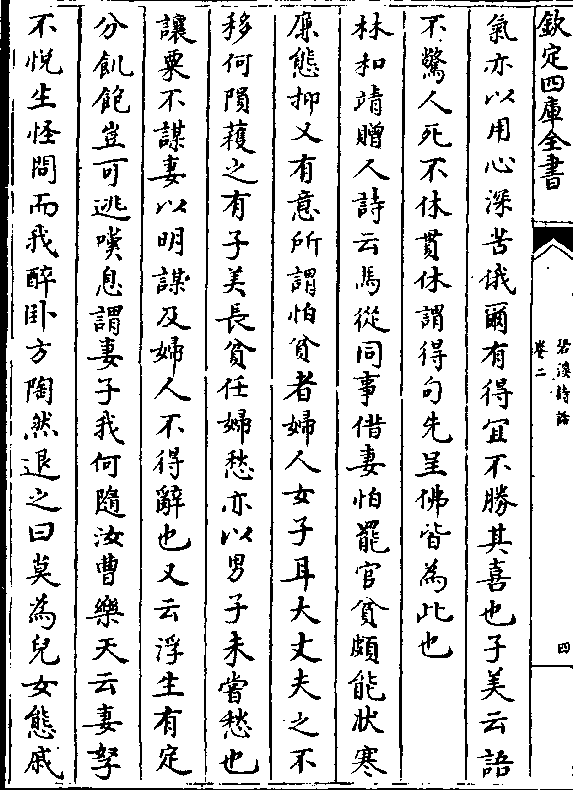 欽定四庫全書
䂬溪詩話
卷二
四
氣亦以用心深苦俄爾有得宜不勝其喜也子美云語
不驚人死不休貫休謂得句先呈佛皆為此也
林和靖贈人詩云馬從同事借妻怕罷官貧頗能狀寒
廉態抑又有意所謂怕貧者婦人女子耳大丈夫之不
移何隕穫之有子美長貧任婦愁亦以男子未嘗愁也
讓粟不謀妻以明謀及婦人不得辭也又云浮生有定
分飢飽豈可逃嘆息謂妻子我何隨汝曹樂天云妻孥
不悅生怪問而我醉卧方陶然退之曰莫為兒女態戚